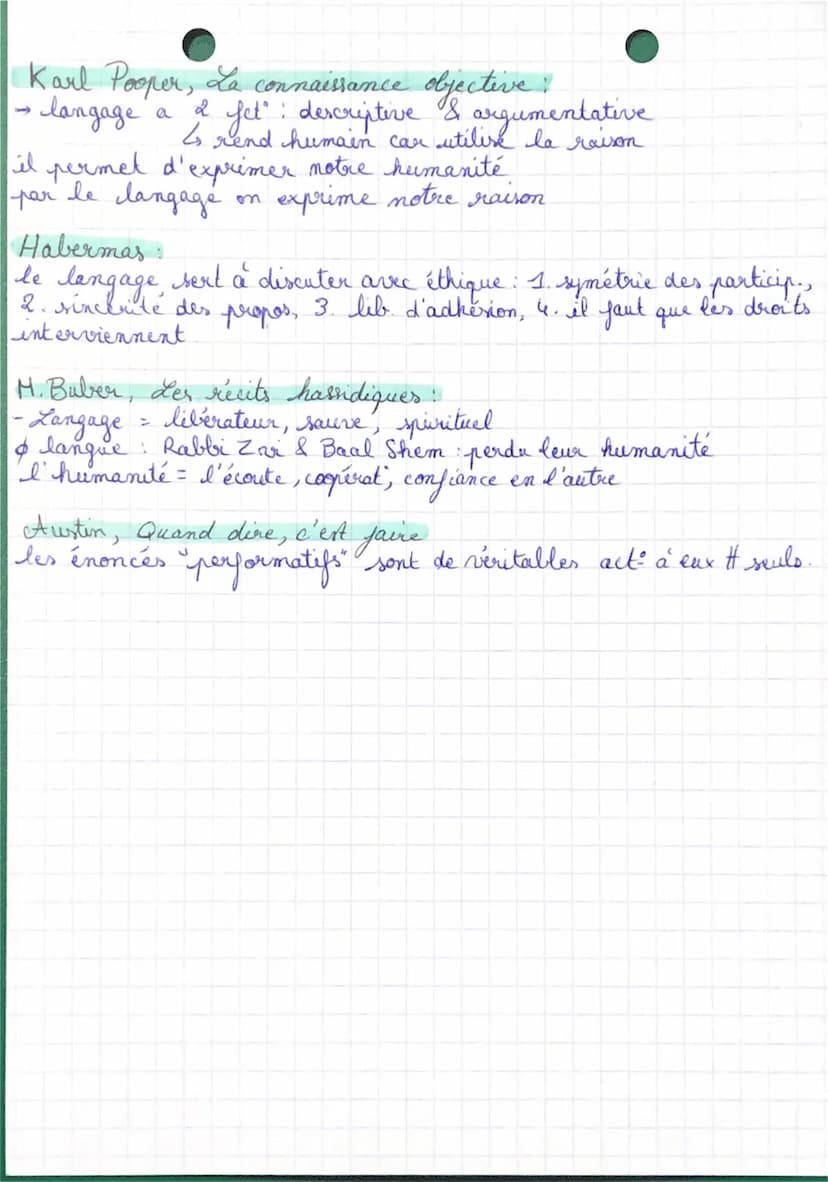 Karl Pooper, La connaissance objective :
→ langage a 2 fct° : descriptive & argumentative
↳ rend humain car utilise la raison
il permet d'exprimer notre humanité
par le langage on exprime notre raison
Habermas :
le langage sert à discuter avec éthique : 1. symétrie des particip.,
2. sincérité des propos, 3. lib. d'adhésion, 4. il faut que les droits
interviennent
M. Buber, Les récits hassidiques :
- Langage = libérateur, sauve, spirituel
ϕ langue : Rabbi Zvi & Baal Shem : perdu leur humanité
l'humanité = l'écoute, coopérat°, confiance en l'autre
Austin, Quand dire, c'est faire
les énoncés "performatifs" sont de véritables act° à eux # seuls.